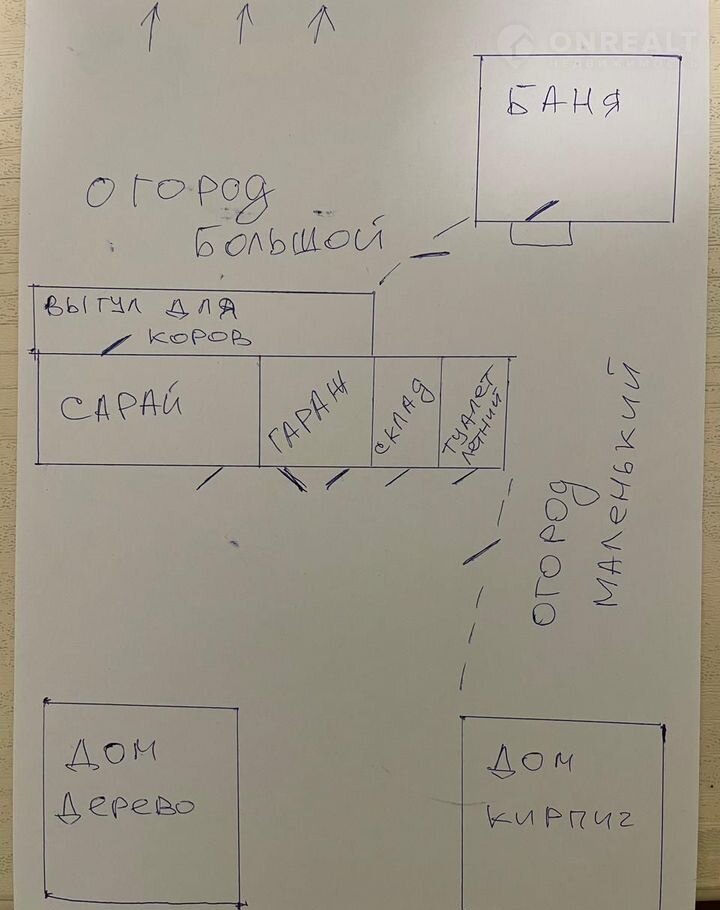 ONREALT
НЕДВИЖИМОСТЬ
БАНЯ
ОГОРОД
БОЛЬШОЙ
ВЫГУЛ ДЛЯ
КОРОВ
САРАЙ
ГАРАЖ
СКЛАД
ТУАЛЕТ
ЛЕТНИЙ
ОГОРОД
МАЛЕНЬКИЙ
ДОМ
ДЕРЕВО
ДОМ
КИРПИЧ